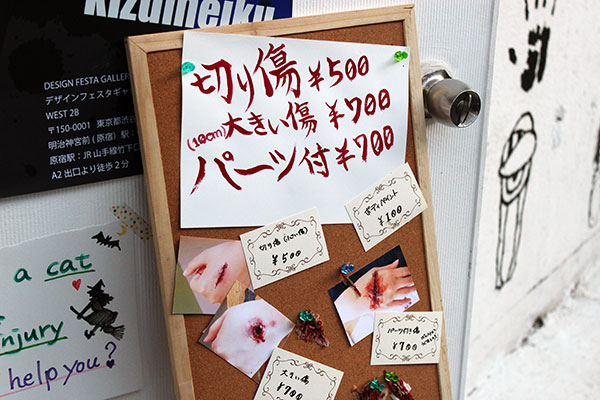 kizumeiku
DESIGN FESTA GALLER
デザインフェスタギャ
WEST 2B
〒150-0001 東京都渋谷
明治神宮前(原宿)駅:
原宿駅:JR山手線竹下口
A2出口より徒歩2分
切り傷 ¥500
(10cm)大きい傷 ¥700
パーツ付 ¥700
ボディペイント
¥100
切り傷(小さい傷)
¥500
パーツ付き傷
¥700
大きい傷
¥700
a cat
injury
help you?